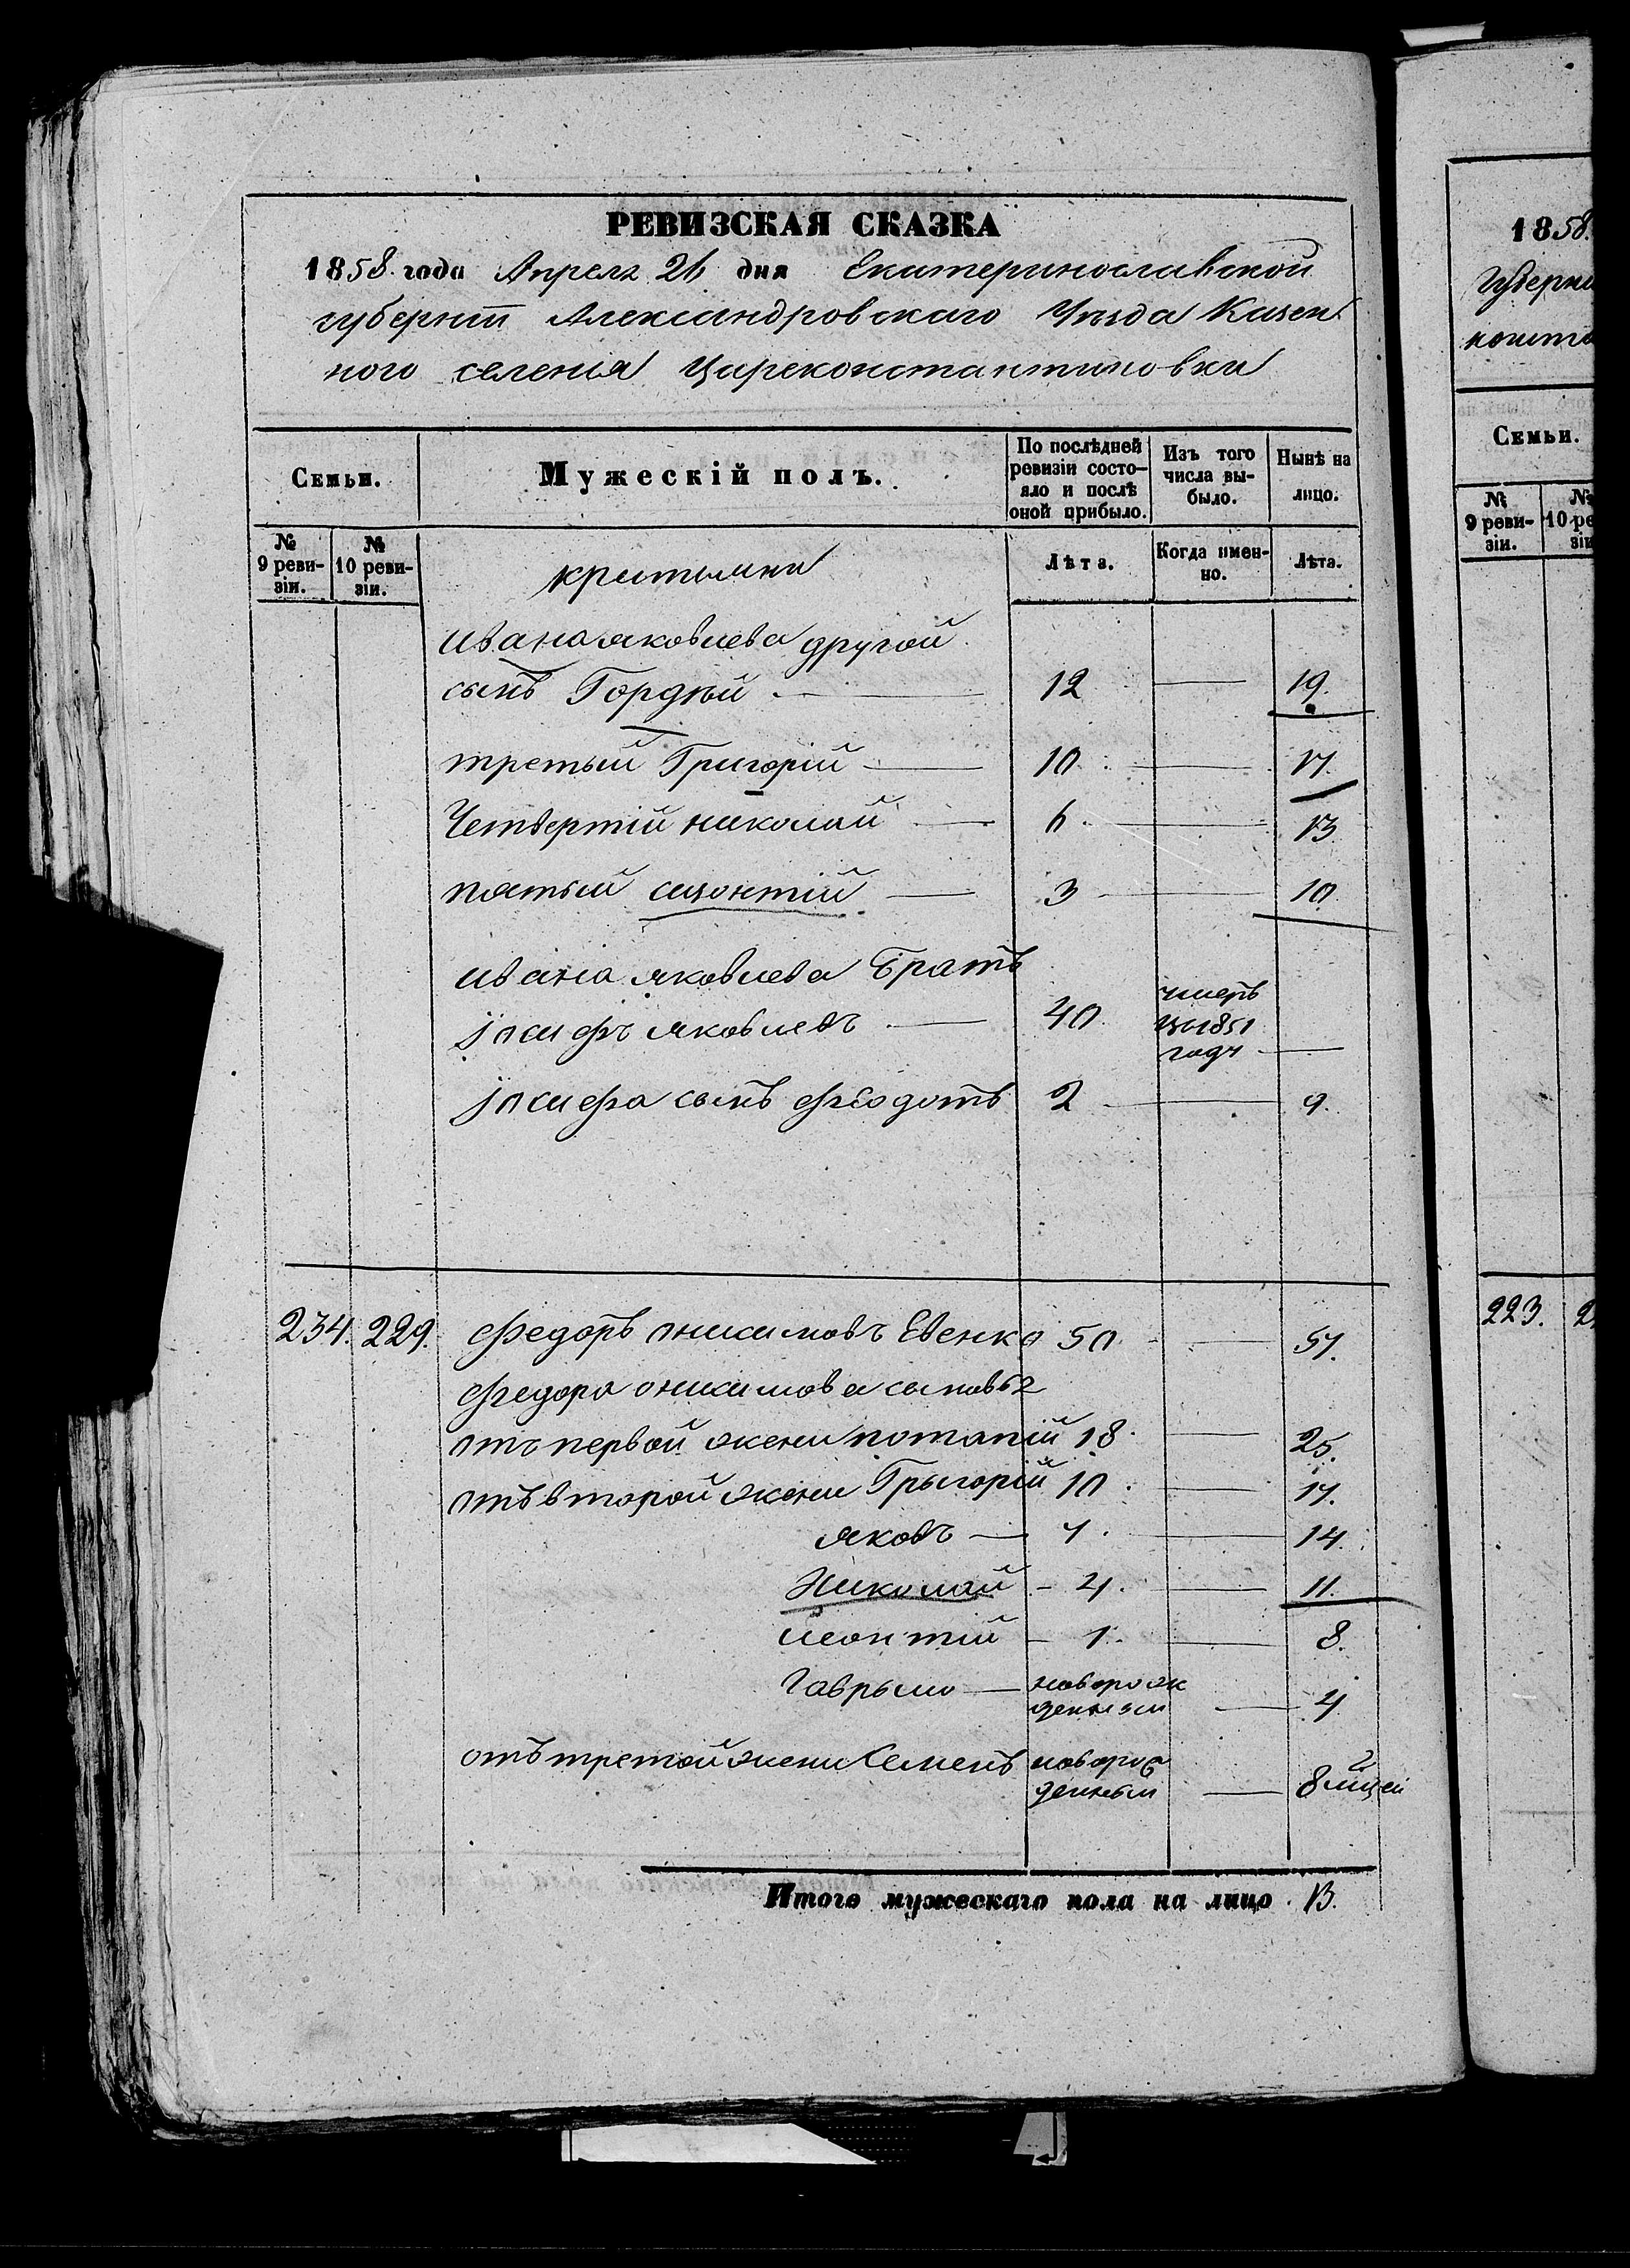 РЕВИЗСКАЯ СКАЗКА
1858 года Апреля 26 дня Екатеринославской
губерніи Александровскаго Уѣзда Казен
ного селенія Цареконстантиновки
Семьи.
Мужескій полъ.
По послѣдней ревизіи состо-
яло и послѣ оной прибыло.
Изъ того числа вы-
было.
Нынѣ на лицо.
№ 9 реви-
зіи.
№ 10 реви-
зіи.
Лѣта.
Когда имен-
но.
Лѣта.
ивана яковлева другой
сынъ Гордѣй 12 19.
третьий Григорій 10 17.
Четвертій николай 6 13
пятый 3 10
ивана яковлева братъ
іосифъ яковлевъ 40 умеръ въ 1851 году
іосифа сынъ феодотъ 2 9.
234. 229. федоръ оникимовъ Евенко 50 57.
федора оникимова сыновья
отъ первой жени потапій 18 25.
отъ второй жени Грыгорій 10 17.
яковъ 7. 14.
Николай 4. 11.
леонтій 1. 8.
Гаврыло новорож
денный 4
отъ третой жени Семенъ новорож
денный 8
Итого мужескаго пола на лицо 13.
1858.
Губерни
Семьи.
№ 9 реви-
зіи.
№ 10 ре
зіи
223.